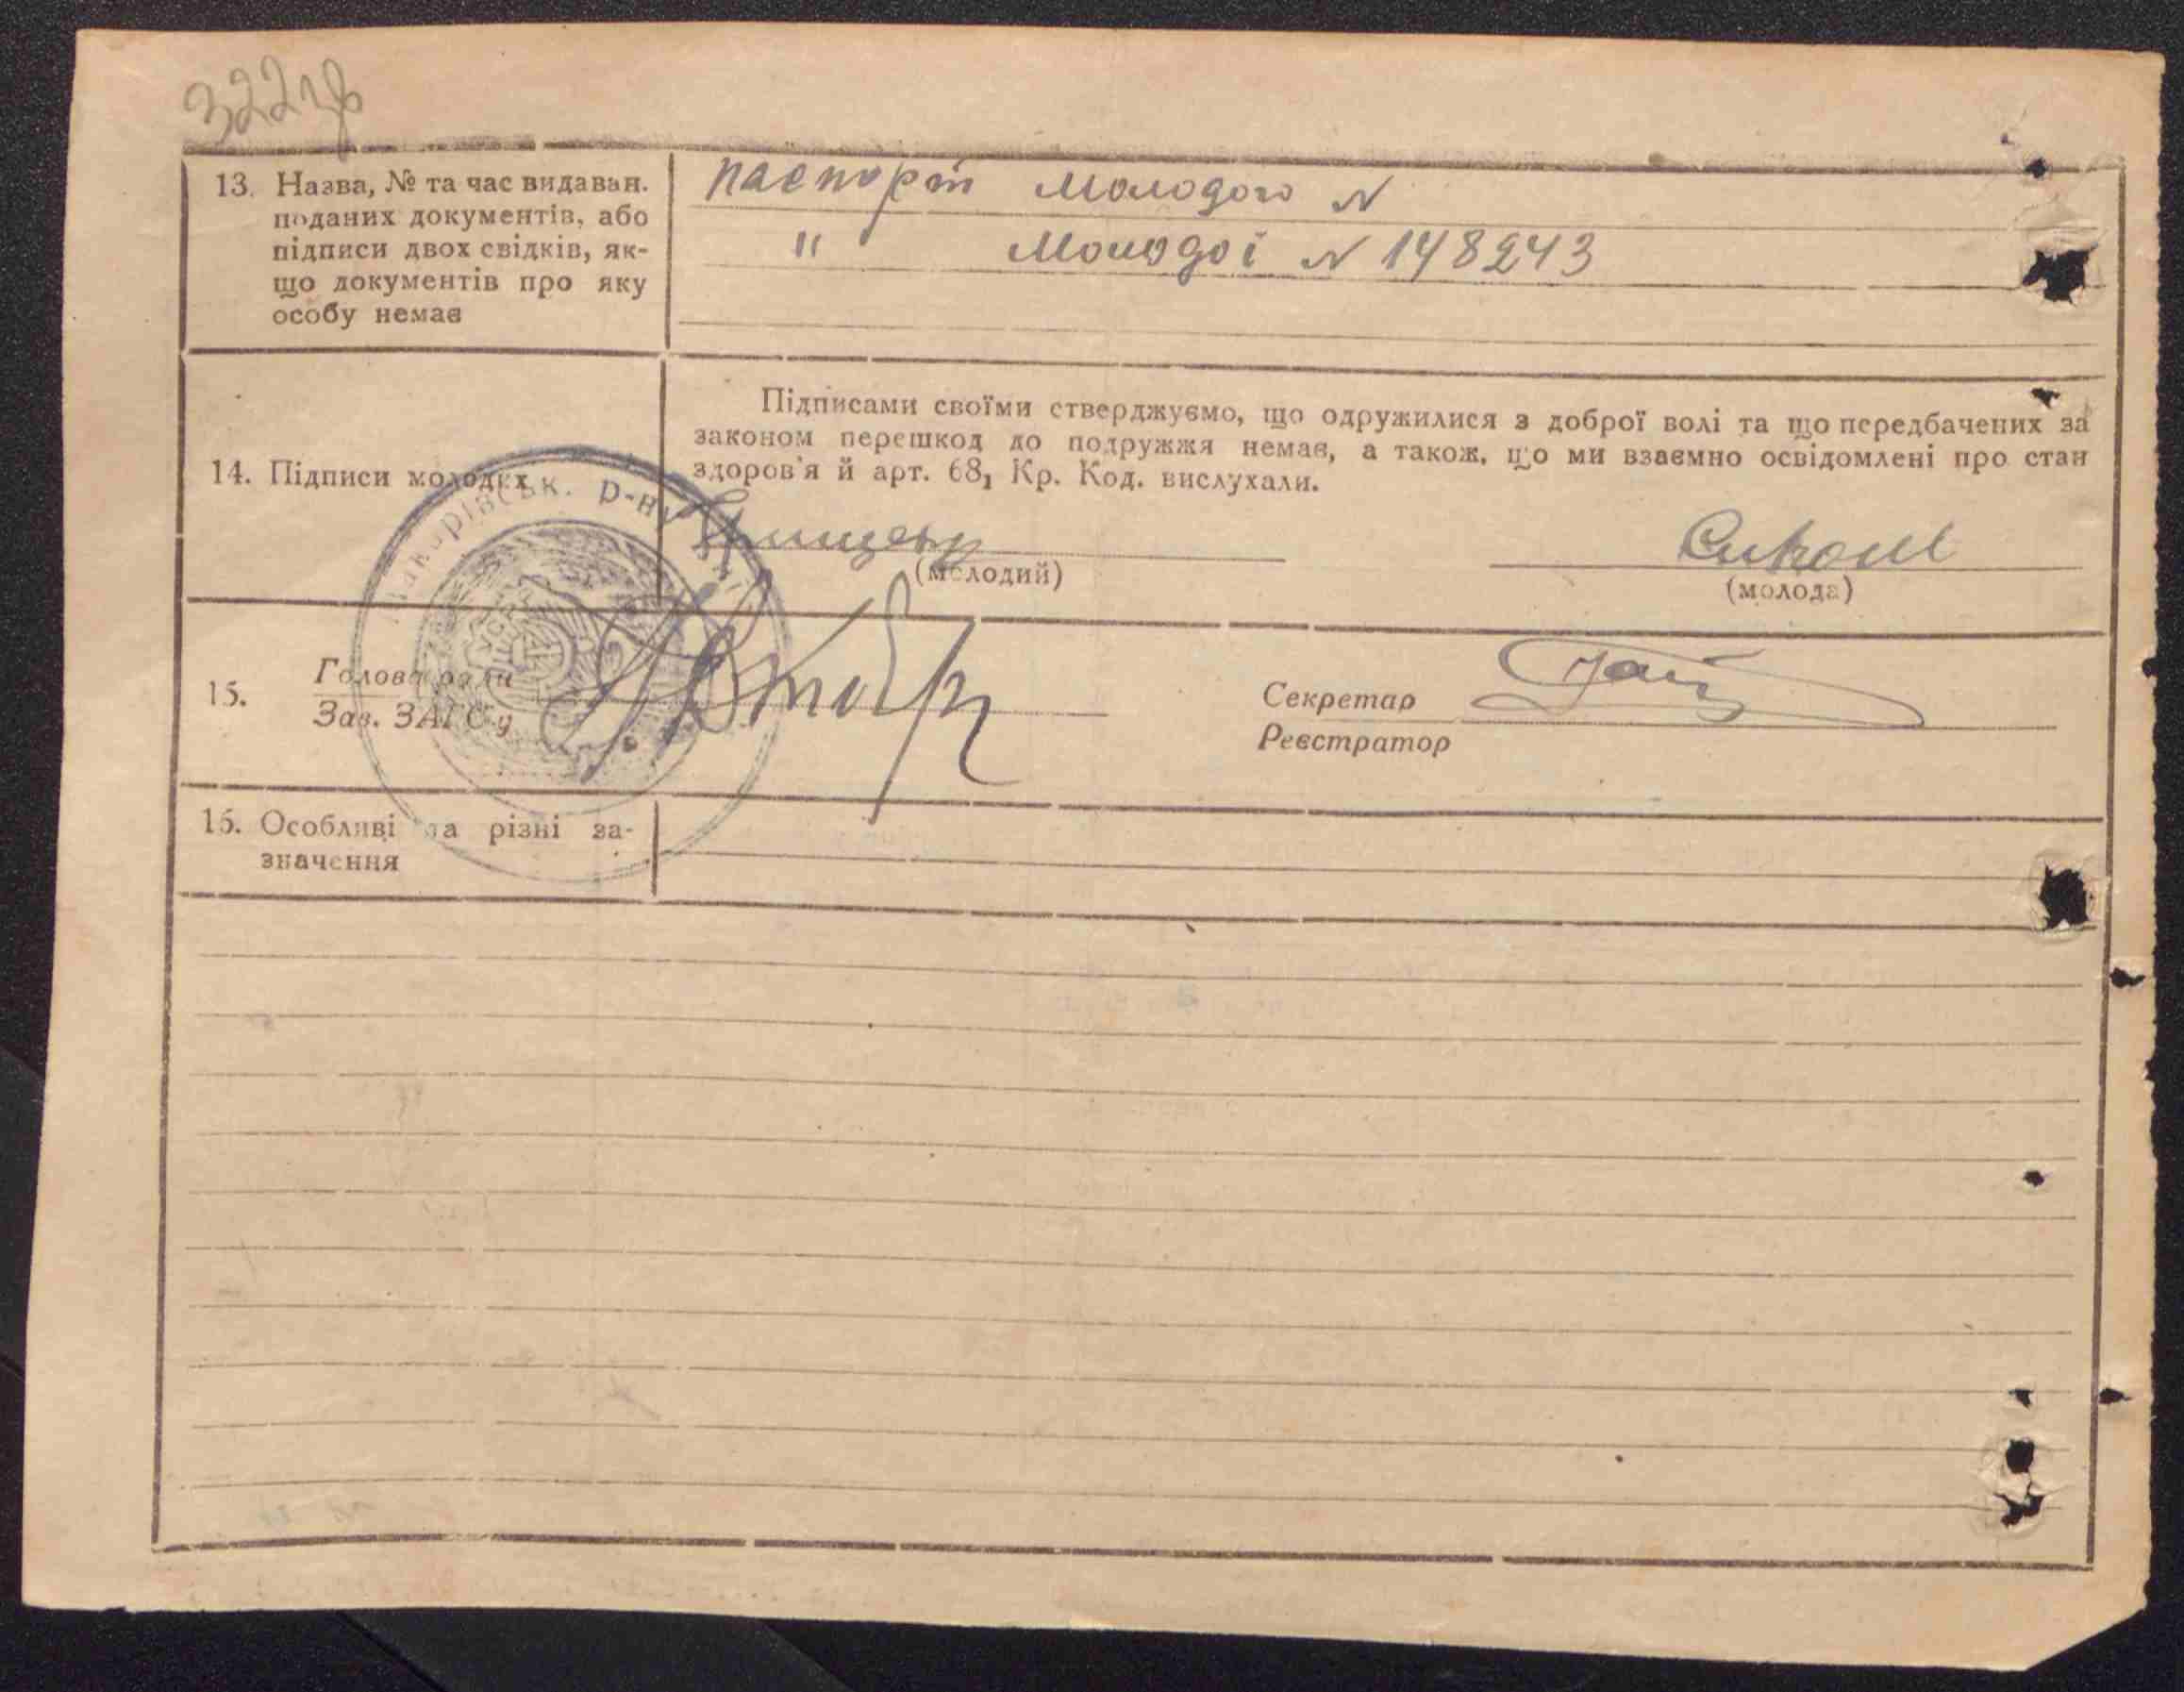 322зв
13. Назва, № та час видаван.
поданих документів, або
підписи двох свідків, як-
що документів про яку
особу немає
паспорт молодого N
" молодої N 148243
14. Підписи молодих
Підписами своїми стверджуємо, що одружилися з доброї волі та що передбачених за
законом перешкод до подружжя немає, а також, що ми взаємно освідомлені про стан
здоров'я й арт. 68₁ Кр. Код. вислухали.
(молодий)
(молода)
р-ну
15. Голова ради
Зав. ЗАГС'у
Секретар
Реєстратор
15. Особливі та різні за-
значення